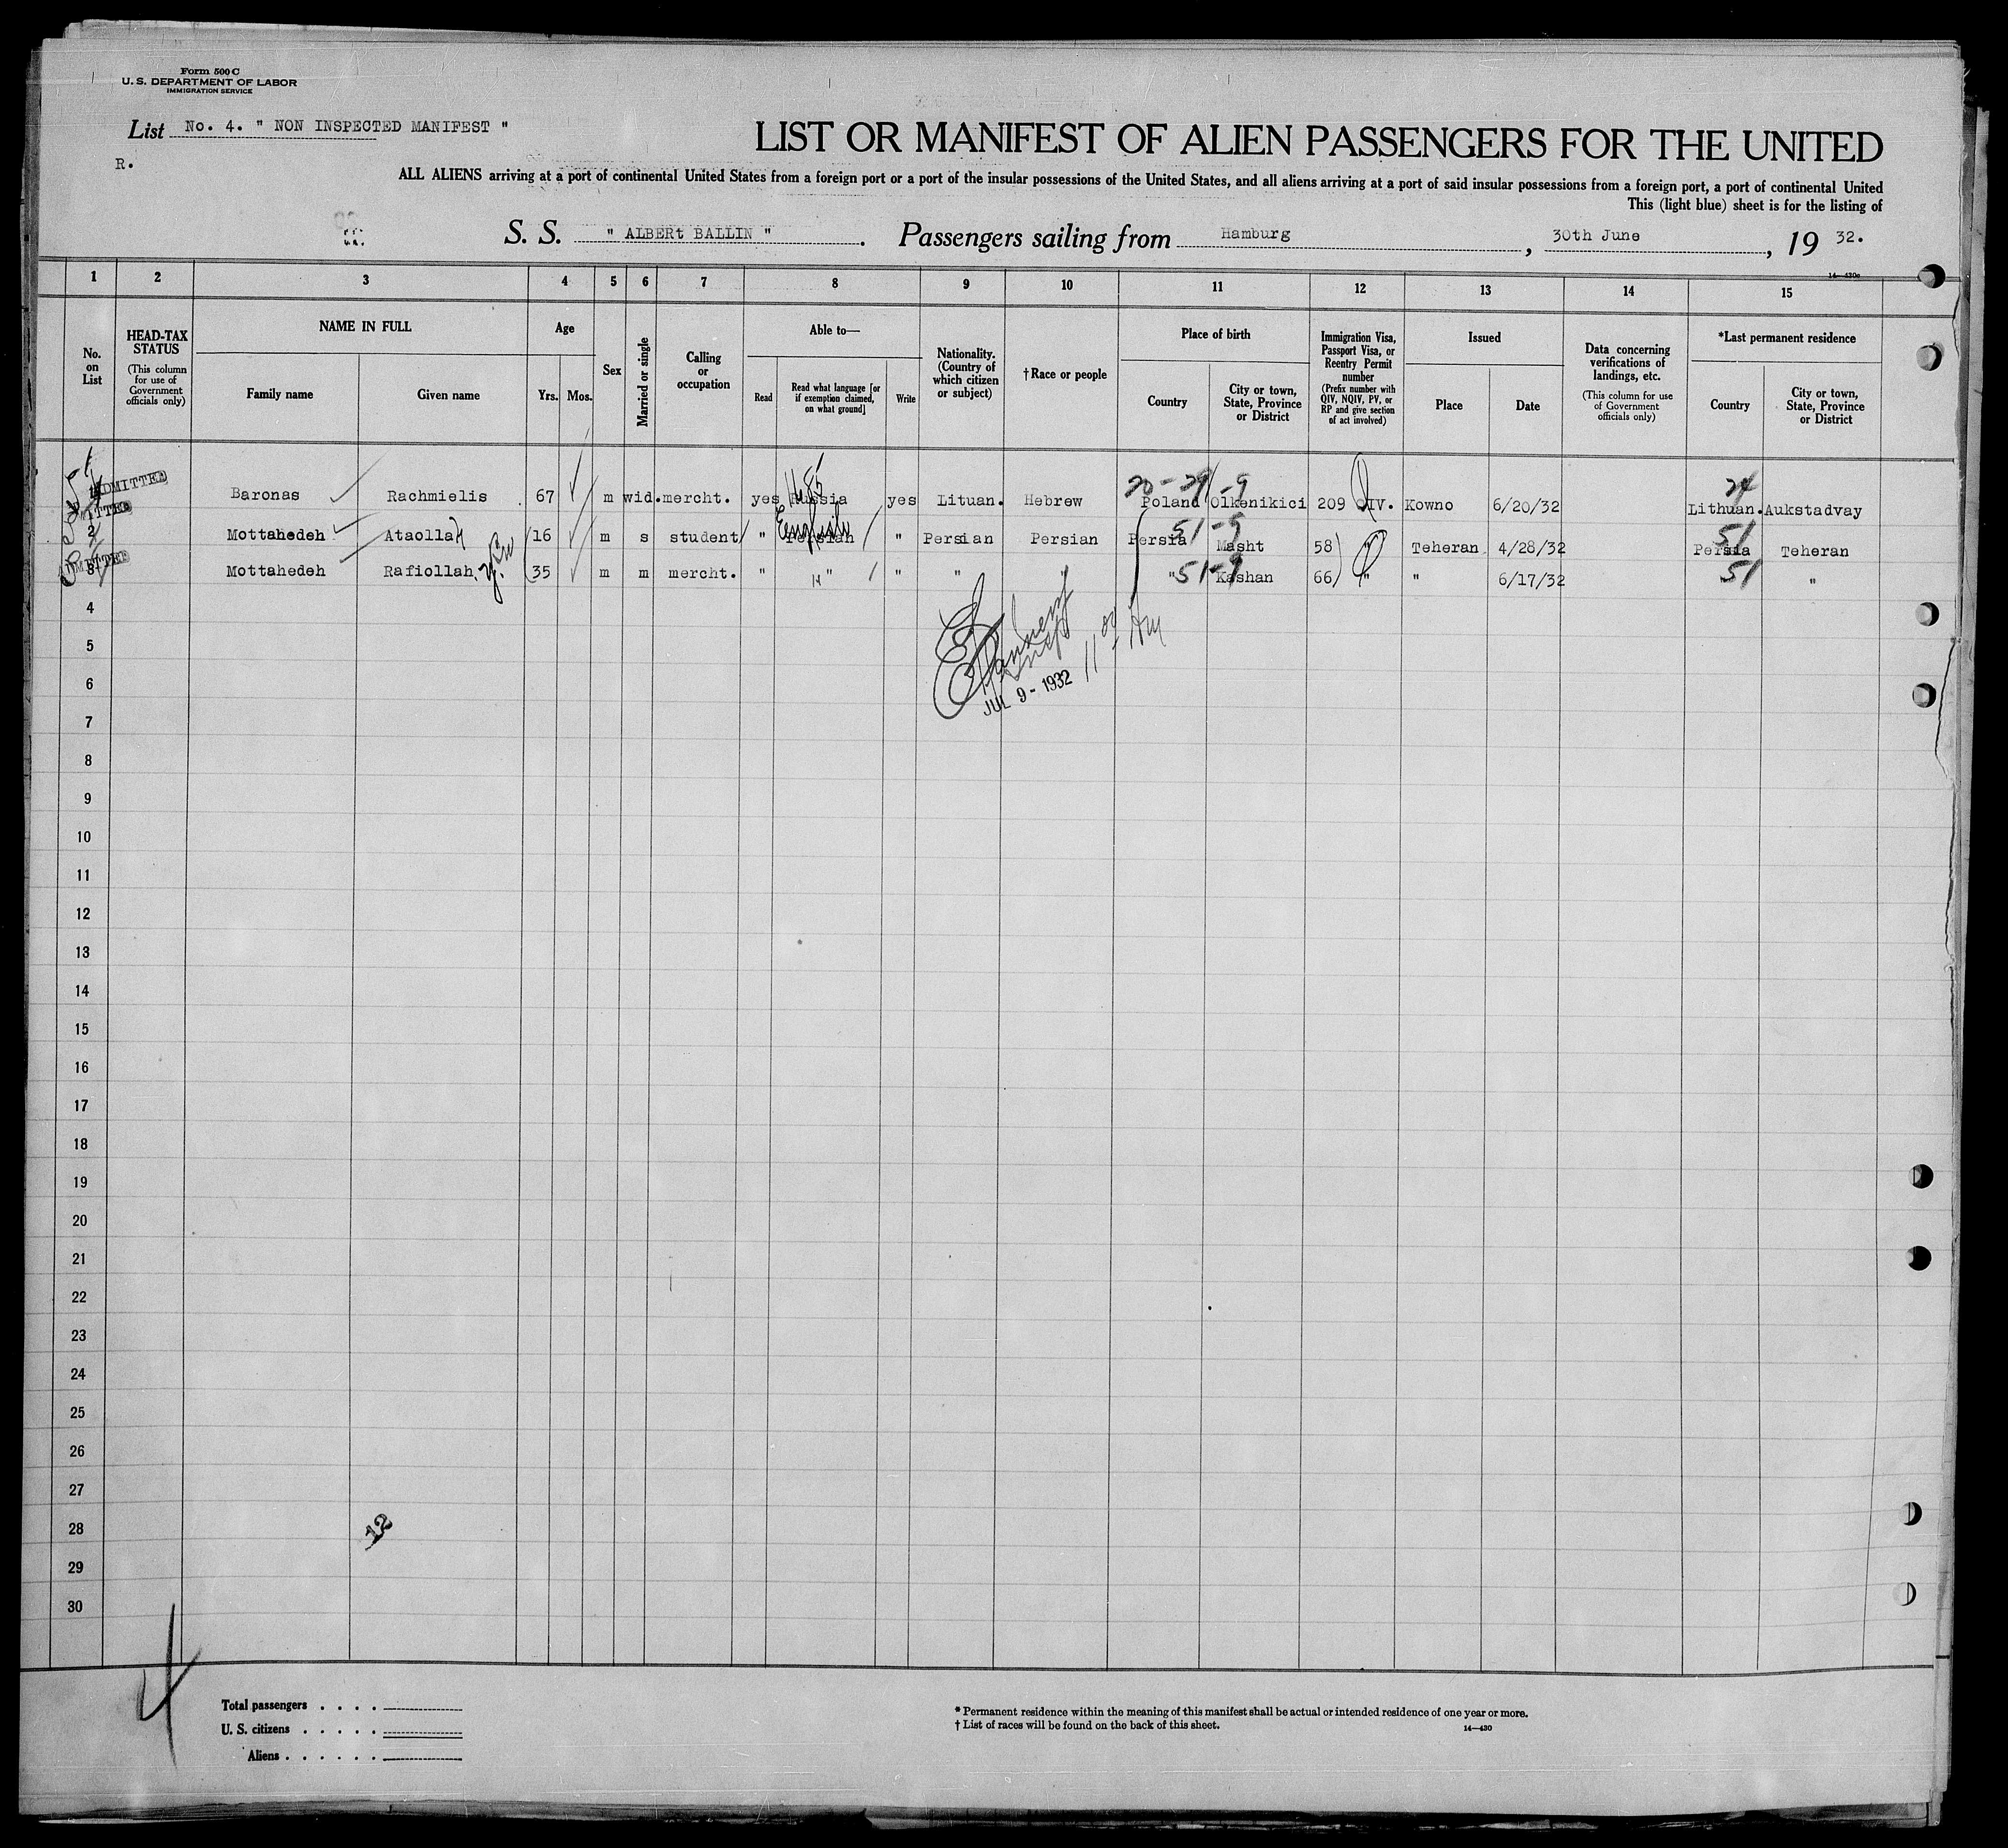 Form 500 C
U. S. DEPARTMENT OF LABOR
IMMIGRATION SERVICE
List No. 4. " NON INSPECTED MANIFEST "
R.
LIST OR MANIFEST OF ALIEN PASSENGERS FOR THE UNITED
ALL ALIENS arriving at a port of continental United States from a foreign port or a port of the insular possessions of the United States, and all aliens arriving at a port of said insular possessions from a foreign port, a port of continental United
This (light blue) sheet is for the listing of
S. S. " ALBERt BALLIN " . Passengers sailing from Hamburg , 30th June , 19 32.
14—430c
1 2 3 4 5 6 7 8 9 10 11 12 13 14 15
No. on List
HEAD-TAX STATUS (This column for use of Government officials only)
NAME IN FULL
Family name Given name
Age
Yrs. Mos.
Sex
Married or single
Calling or occupation
Able to—
Read Read what language [or if exemption claimed, on what ground] Write
Nationality. (Country of which citizen or subject)
†Race or people
Place of birth
Country City or town, State, Province or District
Immigration Visa, Passport Visa, or Reentry Permit number (Prefix number with QIV, NQIV, PV, or RP and give section of act involved)
Issued
Place Date
Data concerning verifications of landings, etc. (This column for use of Government officials only)
*Last permanent residence
Country City or town, State, Province or District
ADMITTED
20-29 -9 24
1 Baronas Rachmielis 67 m wid. mercht. yes Russia yes Lituan. Hebrew Poland Olkenikici 209 QIV. Kowno 6/20/32 Lithuan. Aukstadvay
English 51-9 51
2 Mottahedeh Ataollah 16 m s student " Persian " Persian Persian Persia Masht 58 " Teheran 4/28/32 Persia Teheran
ADMITTED
3 Mottahedeh Rafiollah. 35 m m mercht. " " " " " " 51-9 Kashan 66 " " 6/17/32 51 "
4
5
6
JUL 9 - 1932
7
8
9
10
11
12
13
14
15
16
17
18
19
20
21
22
23
24
25
26
27
28
12
29
30
4
Total passengers . . . .
U. S. citizens . . . . .
Aliens . . . . . .
* Permanent residence within the meaning of this manifest shall be actual or intended residence of one year or more.
† List of races will be found on the back of this sheet.
14—430